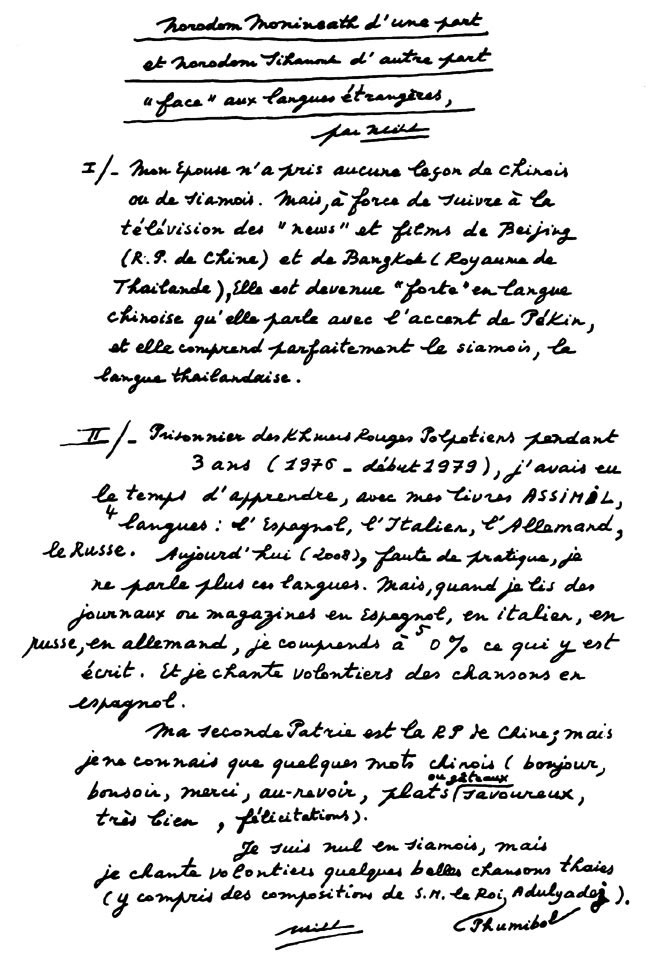 Norodom Monineath d'une part
et Norodom Sihanouk d'autre part
"face" aux langues étrangères,
par
I/- Mon Epouse n'a pris aucune leçon de chinois
ou de siamois. Mais, à force de suivre à la
télévision des "news" et films de Beijing
(R.P. de Chine) et de Bangkok (Royaume de
Thaïlande), Elle est devenue "forte" en langue
chinoise qu'elle parle avec l'accent de Pékin,
et elle comprend parfaitement le siamois, la
langue thaïlandaise.
II/- Prisonnier des Khmers Rouges Polpotiens pendant
3 ans (1976 - début 1979), j'avais eu
le temps d'apprendre, avec mes livres ASSIMIL,
4 langues : l'Espagnol, l'Italien, l'Allemand,
le Russe. Aujourd'hui (2008), faute de pratique, je
ne parle plus ces langues. Mais, quand je lis des
journaux ou magazines en Espagnol, en italien, en
russe, en allemand, je comprends à 50% ce qui y est
écrit. Et je chante volontiers des chansons en
espagnol.
Ma seconde Patrie est la RP de Chine; mais
je ne connais que quelques mots chinois (bonjour,
bonsoir, merci, au-revoir, plats ou gâteaux savoureux,
très bien, félicitations).
Je suis nul en siamois, mais
je chante volontiers quelques belles chansons thaïes
(y compris des compositions de S.M. le Roi Phumibol Adulyadej).